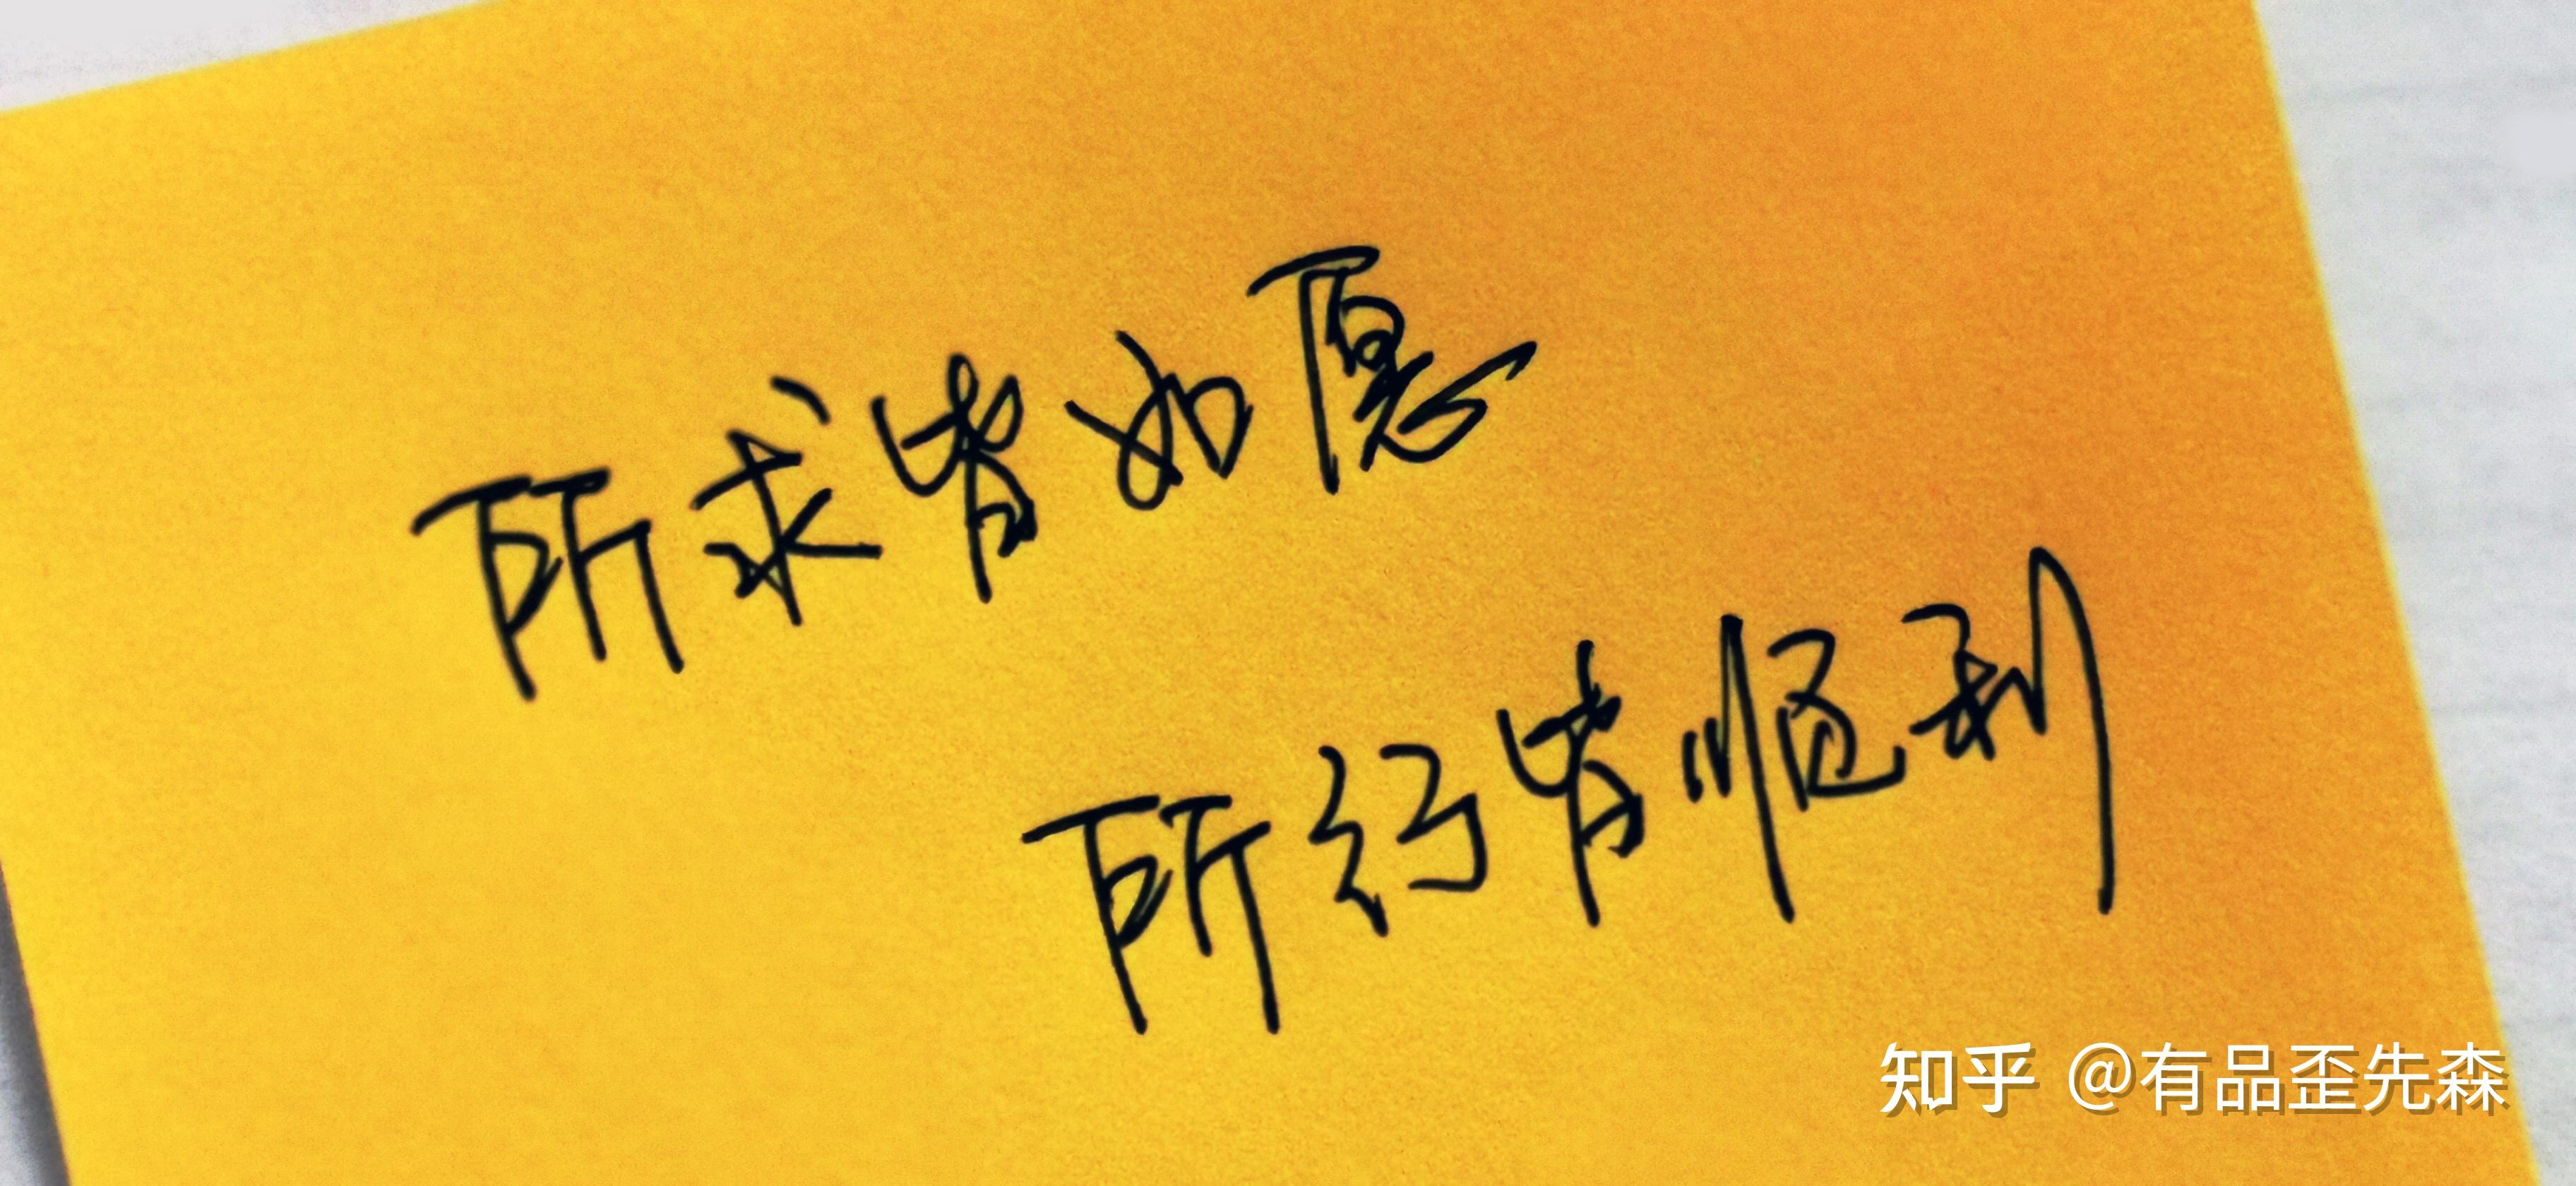 所求皆如愿
所行皆顺利
知乎 @有品歪先森